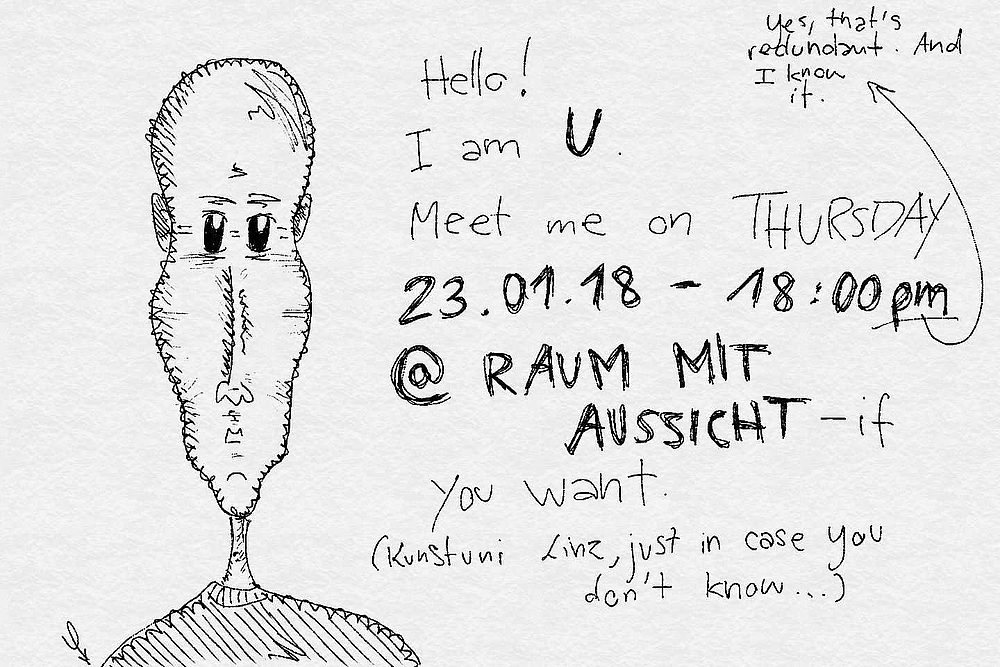 Yes, that's
redundant. And
I know
it.
Hello!
I am U.
Meet me on THURSDAY
23.01.18 - 18:00 pm
@ RAUM MIT
AUSSICHT - if
you want.
(Kunstuni Linz, just in case you
don't know...)